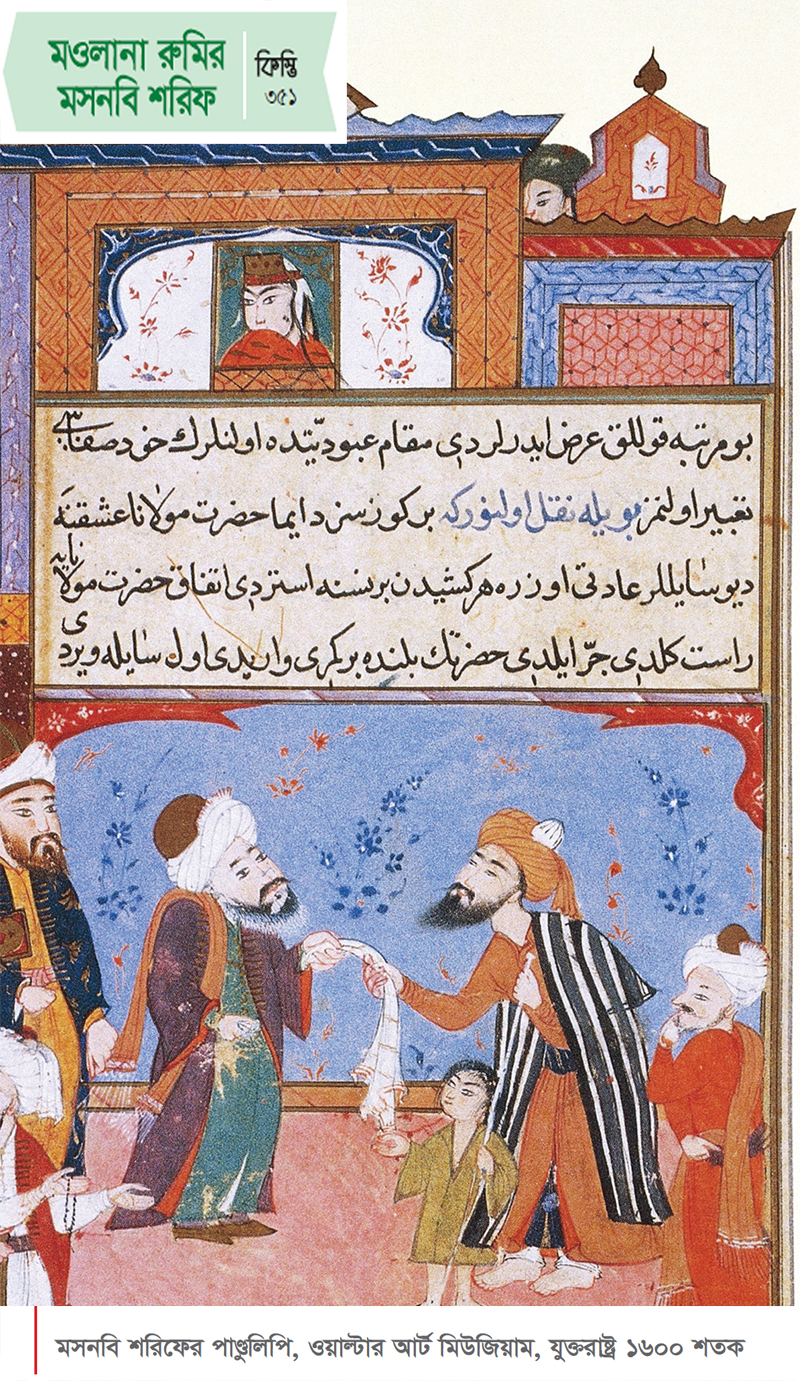 মওলানা রুমির
মসনবি শরিফ
কিস্তি
৩৫১
بو مرتبه قوللق عرض ايدرلردى مقام عبوديتده اولنلرك خود صفاسى
تعبير اولنمز بويله نقل اولنوركه بر كون سز دايما حضرت مولانا عشقنه
ديو سايللر عادتى اوزره هر كشيدن بر نسنه استردى اتفاق حضرت مولانايه
راست كلدى جر ايلدى حضرتك بلنده بر وارىدى اول سايله ويردى
মসনবি শরিফের পাণ্ডুলিপি, ওয়াল্টার আর্ট মিউজিয়াম, যুক্তরাষ্ট্র ১৬০০ শতক